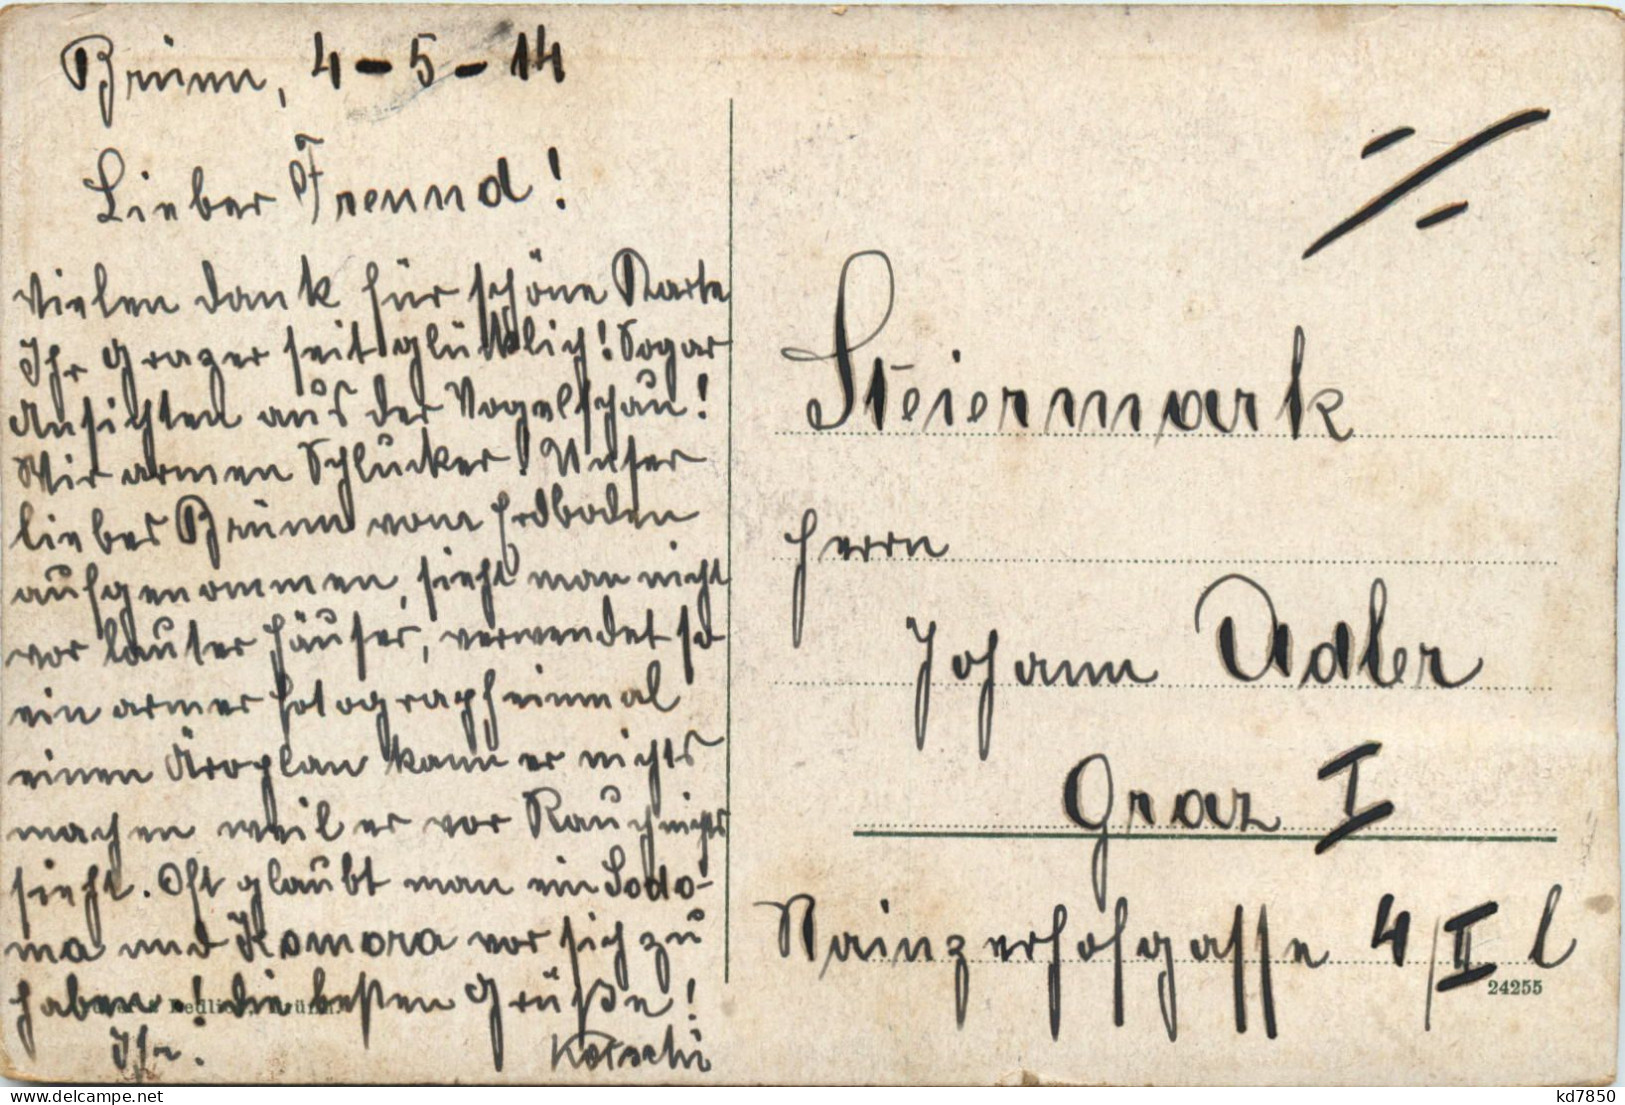 Brünn, 4-5-14
Lieber Freund!
Vielen dank für schöne Karte
Ihr Grazer seit glücklich! Sogar
Ansichten aus der Vogelschau!
Wir armen Schlucker! Unser
liebes Brünn vom Erdboden
aufgenommen, sieht man nicht
vor lauter Häuser, verwendet so
ein armer Fotograph einmal
einen Äroplan kann er nichts
machen weil er vor Rauch nichts
sieht. Oft glaubt man ein Sodo-
ma und Komora vor sich zu
haben! die besten Grüße!
Ihr.
Steiermark
Herrn
Johann Adler
Graz I
Mainzerhofgasse 4/II l
24255
kd7850